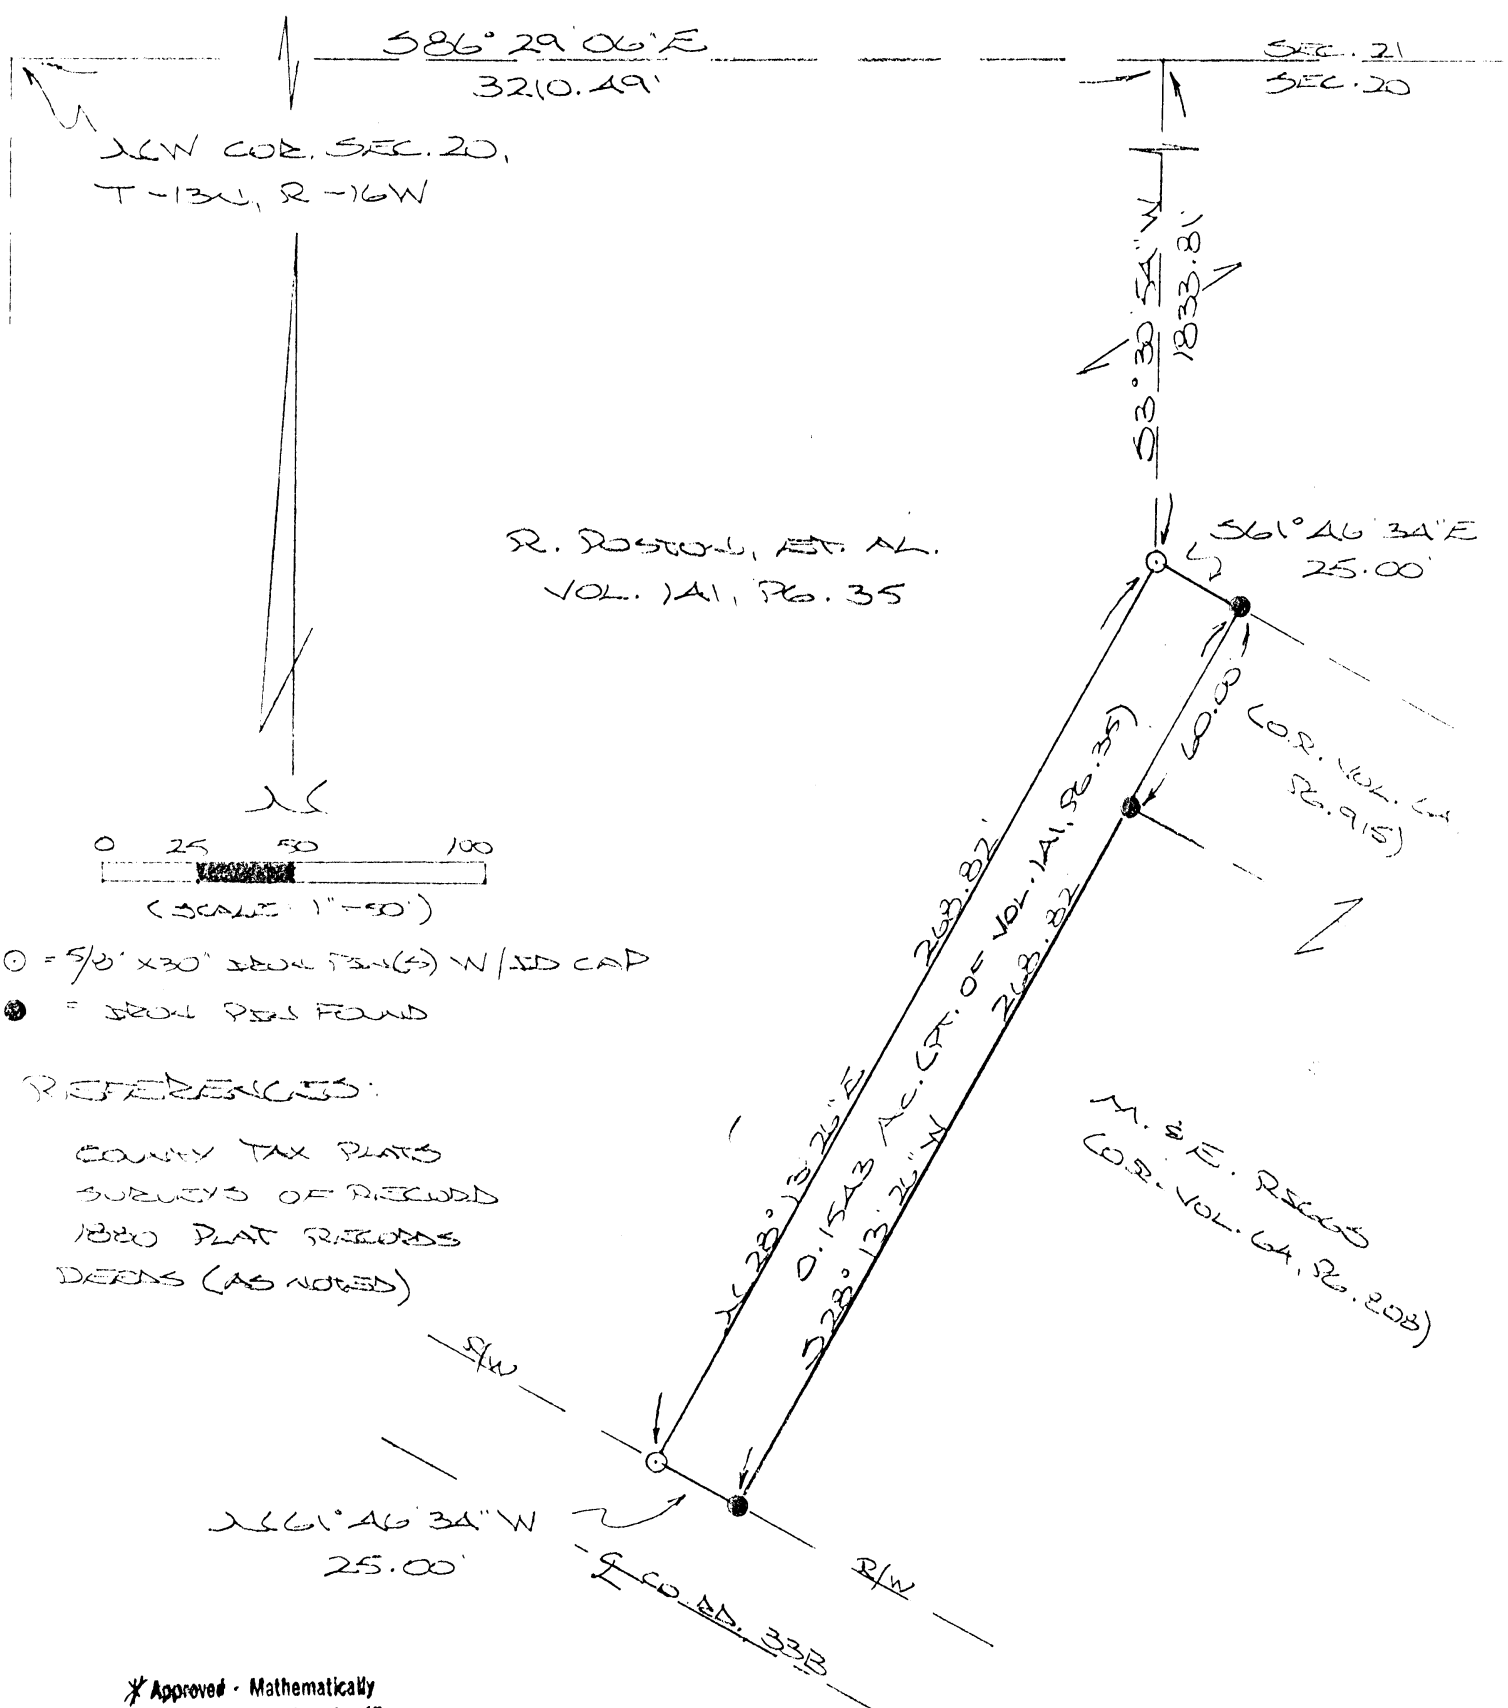 S86° 29' 06" E
3210.49'
SEC. 21
SEC. 20
NW COR. SEC. 20,
T-13N, R-16W
S3° 30' 54" W
1833.81'
R. POSTON, ET. AL.
VOL. 141, PG. 35
S61° 46' 34" E
25.00'
60.00'
(O.R. VOL.
PG. 915)
N
0 25 50 100
(SCALE: 1"=50')
= 5/8" x 30" IRON PIN(S) W/ID CAP
= IRON PIN FOUND
REFERENCES:
COUNTY TAX PLATS
SURVEYS OF RECORD
1880 PLAT RECORDS
DEEDS (AS NOTED)
N 28° 13' 26" E 268.82'
0.1543 AC. (PT. OF VOL. 141, PG. 35)
S28° 13' 26" W 268.82'
M. & E. RIGGS
(O.R. VOL. 64, PG. 208)
R/W
N61° 46' 34" W
25.00'
R/W
℄ CO. RD. 33B
* Approved - Mathematically